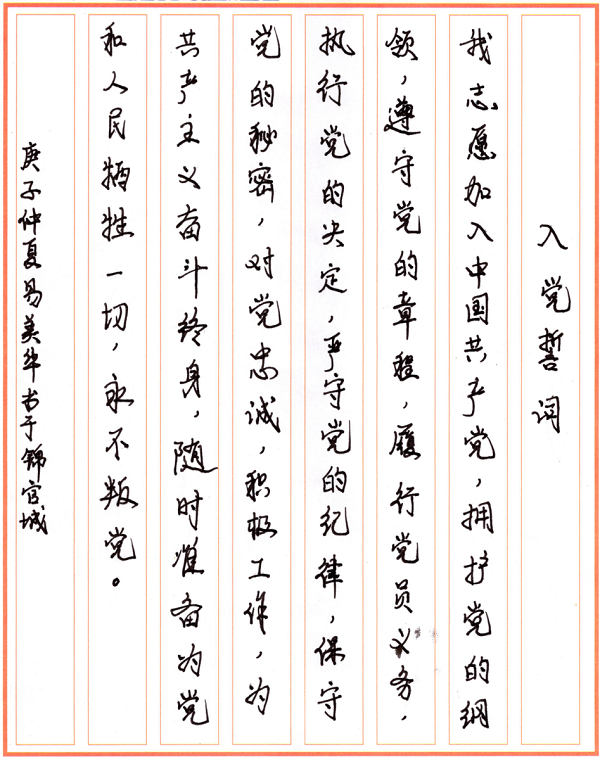 入党誓词
我志愿加入中国共产党，拥护党的纲
领，遵守党的章程，履行党员义务，
执行党的决定，严守党的纪律，保守
党的秘密，对党忠诚，积极工作，为
共产主义奋斗终身，随时准备为党
和人民牺牲一切，永不叛党。
庚子仲夏易美华书于锦官城